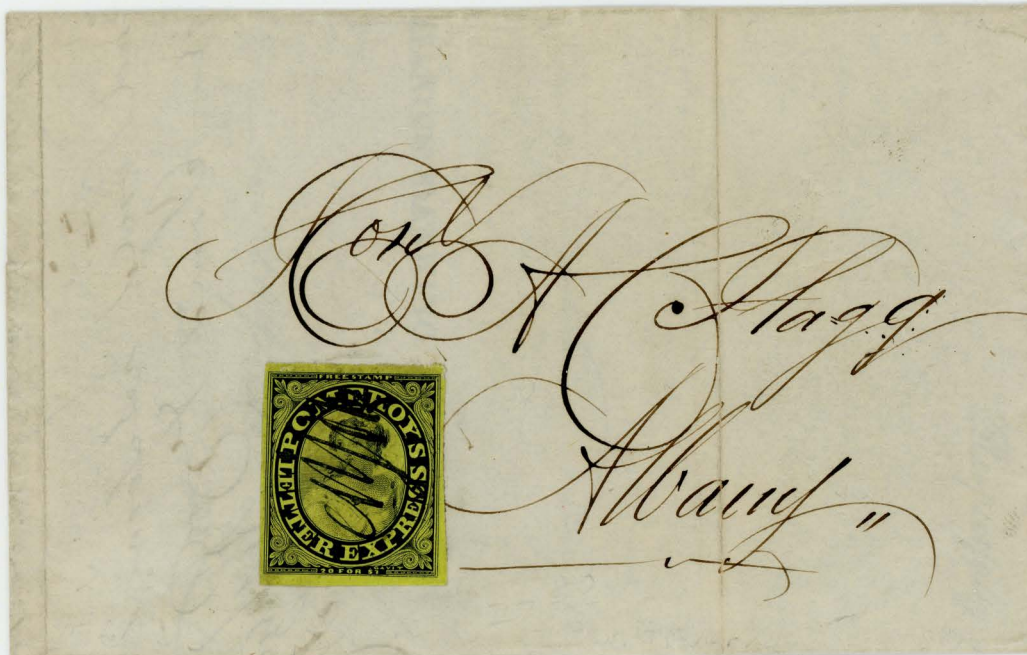 Hon A C Flagg
Albany "
FREE STAMP
POMEROY'S
LETTER EXPRESS
20 FOR $1